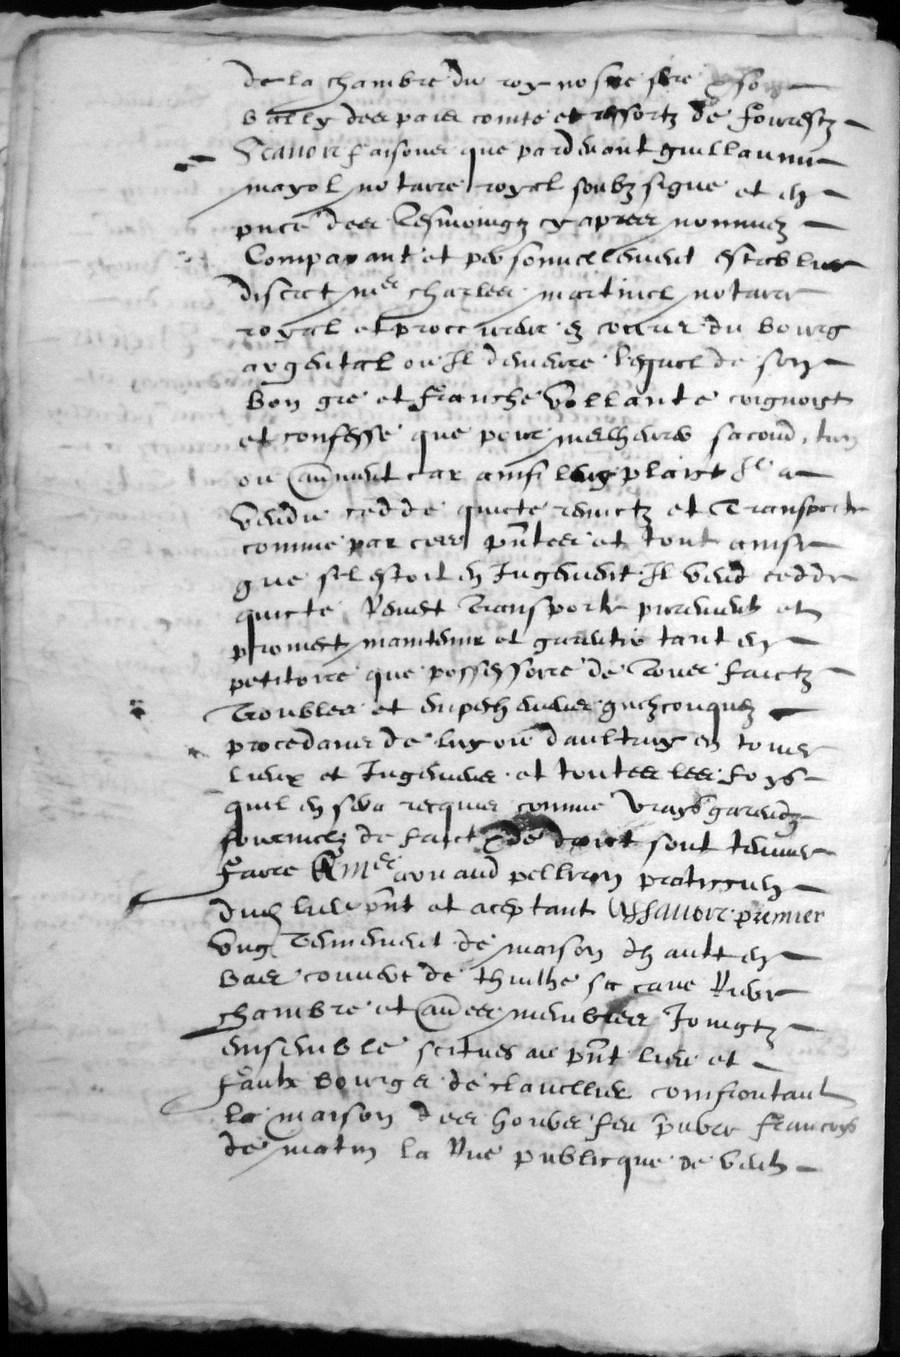 de la chambre du roy nostre sire & son
bally des pais comte et ressortz de fourestz
Scavoir faisons que pardevant guillaume
mayol notaire royal soubz signe et en
pnce des tesmoingz cy apres nommez
Comparant et personnellement estably
discret mer charles martinel notaire
royal et procureur ez cours du bourg
argental ou Il demeure lequel de son
bon gre et franche vollante cognoist
et confesse que pour melheure sa cond.
ou aument car ainsi luy plaist Il a
vendu cedde quicte remictz et transporte
comme par ces pntes et tout ainsi
que sil estoit en Jugement Il vend cedde
quicte remet transporte purement et
promet maintenir et garentir tant en
petitoire que possessoire de tous faictz
troubles et enpeschemens quelzconques
procedans de luy ou daultruy en tous
lieux et Jugemens et toutes les foys
quil en sera requis comme vrays garendz
formelz de faict & de droict sont tenuz
faire A mer arnaud pellirin praticien
dud lieu pnt et aceptant Assavoir premier
ung tenement de maison de hault en
bas couvert de thuilhe sa cave
chambre et aues membres Joingtz
ensemble scitues au pnt lieu et
faulx bourgs de clavellier confrontant
la maison des hoirs feu francoys
de matin la rue publicque de vent